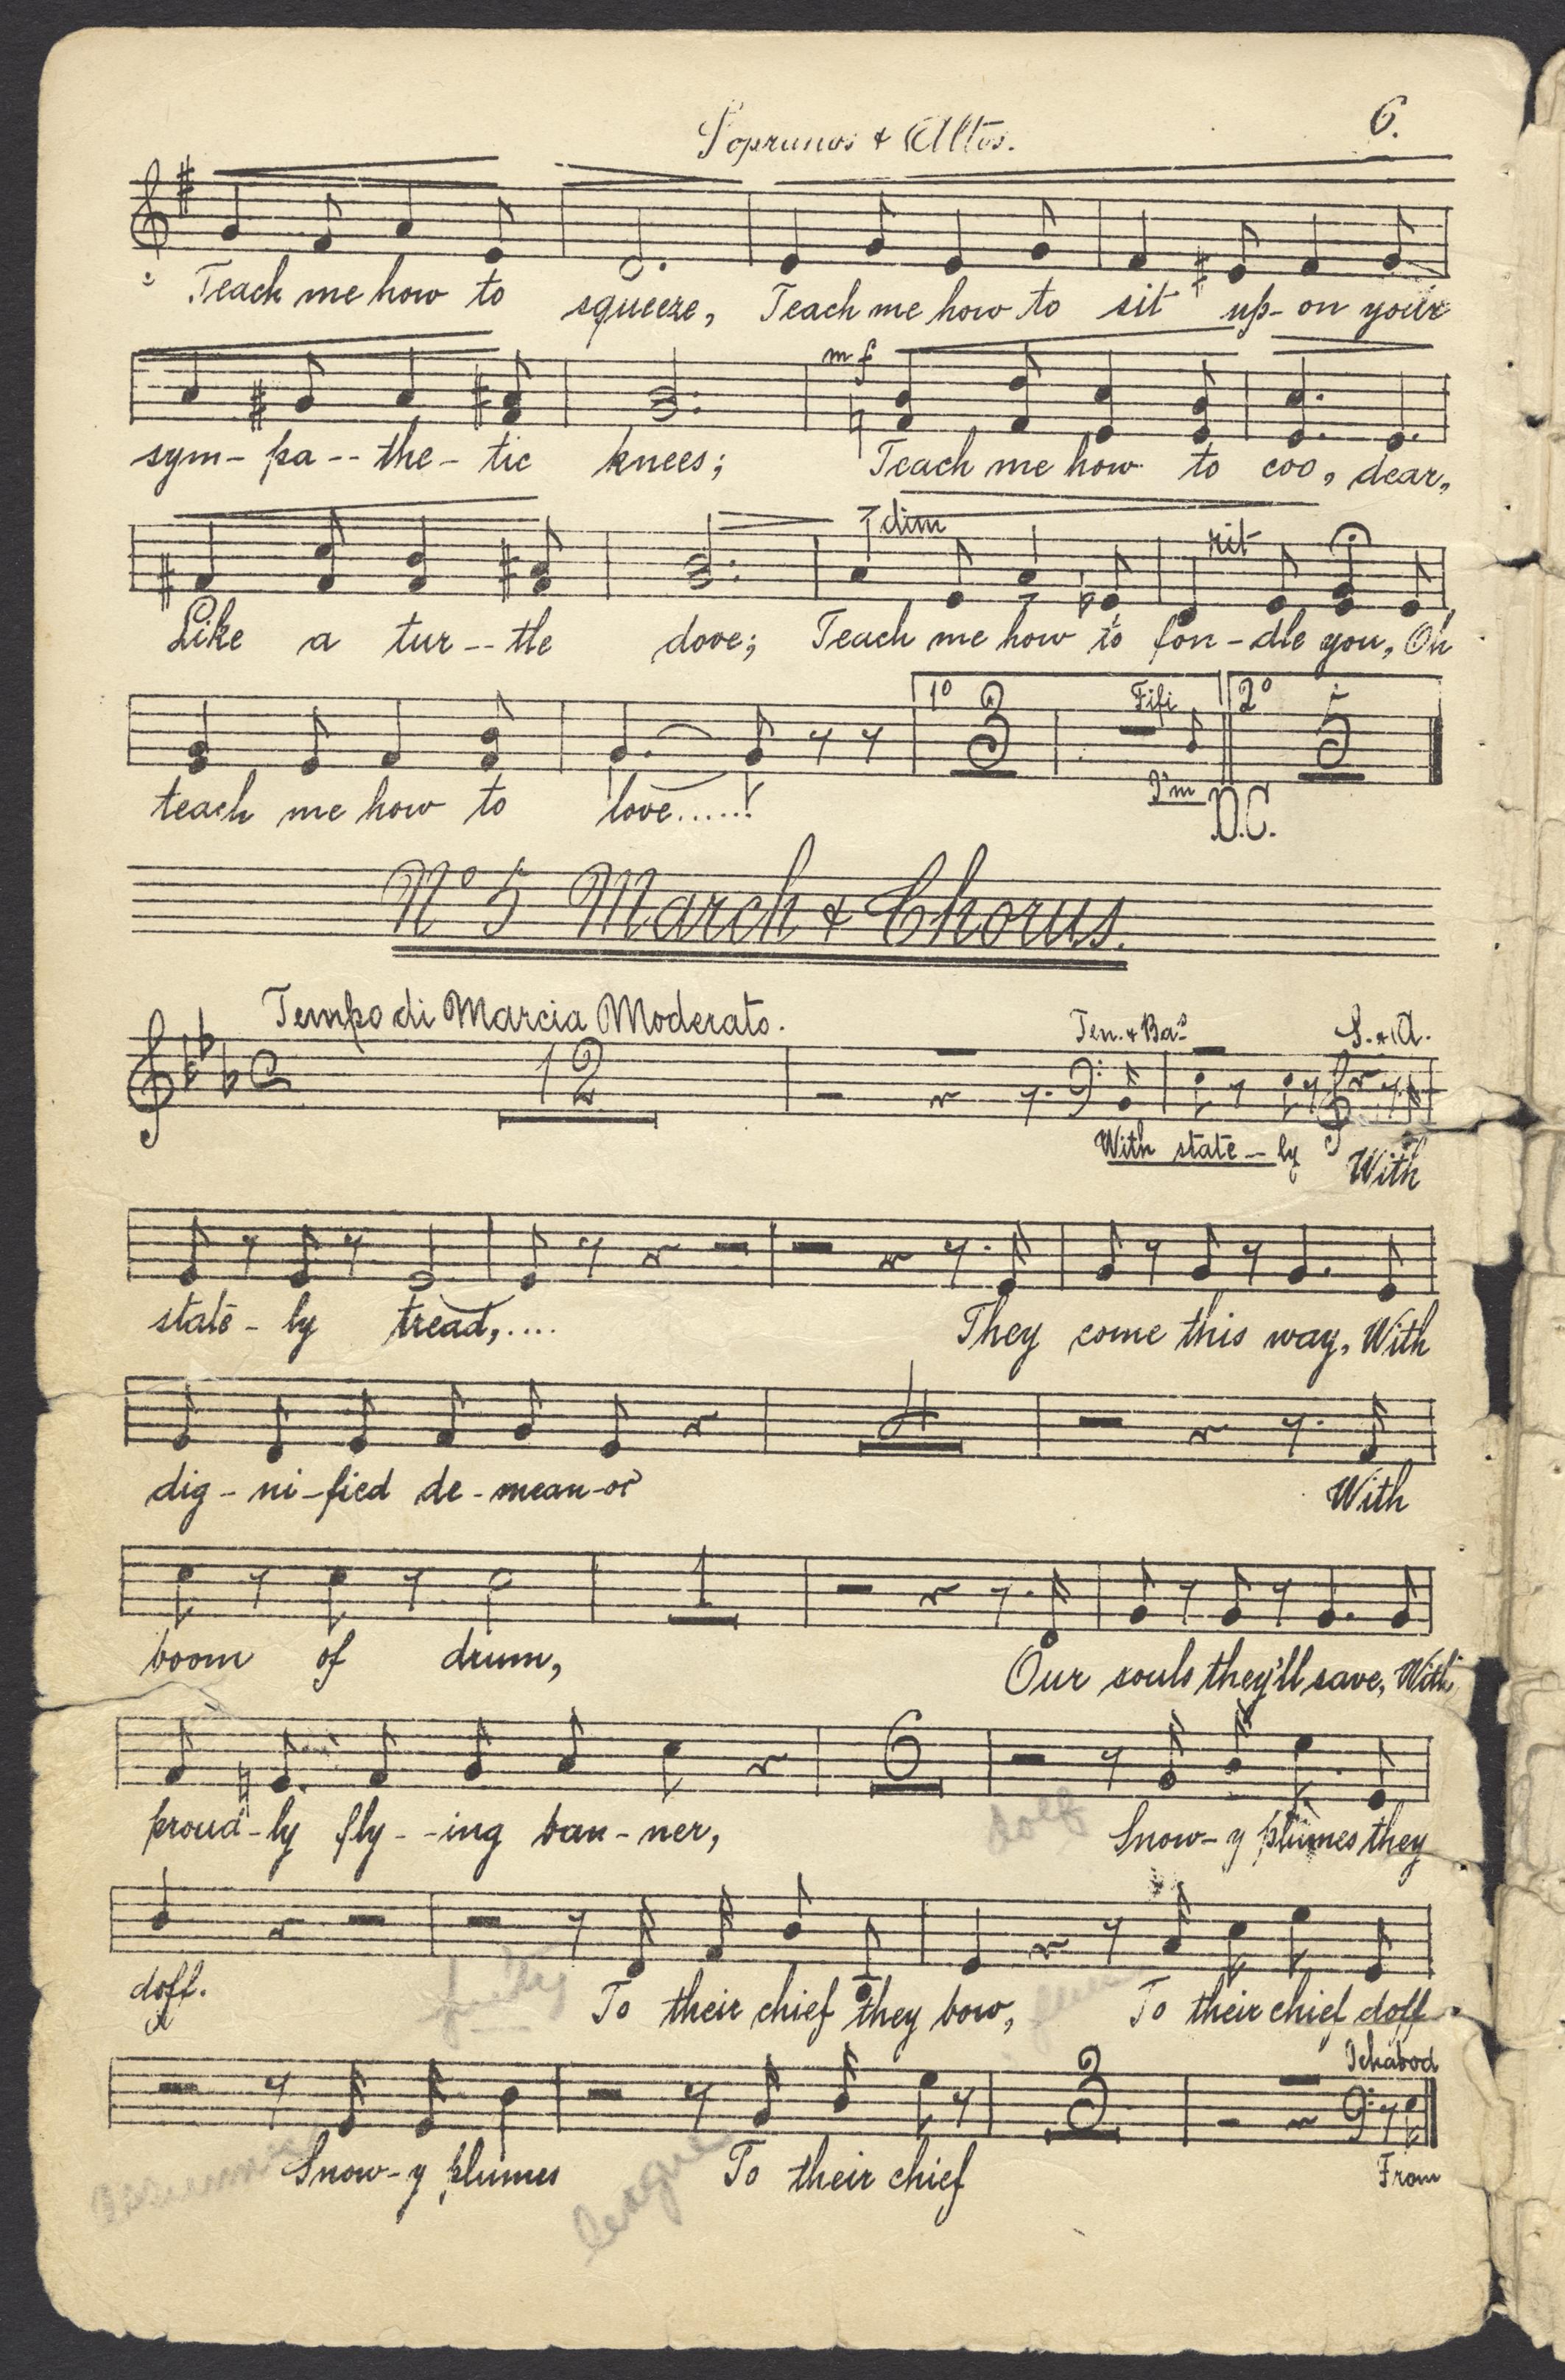 Sopranos & Altos.
6.
Teach me how to squeeze, Teach me how to sit up-on your
mf
sym-pa--the-tic knees; Teach me how to coo, dear,
dim
rit
Like a tur--tle dove; Teach me how to fon-dle you, Oh
1º 3 Fifi 2º 5
teach me how to love.....! I'm D.C.
Nº 5 March & Chorus.
Tempo di Marcia Moderato.
12 Ten. & Bas S. & A.
With state-ly With
state-ly tread,.... They come this way, With
4
dig-ni-fied de-mean-or With
1
boom of drum, Our souls they'll save, With
6
proud-ly fly--ing ban-ner, Snow-y plumes they
doff. To their chief they bow, To their chief doff
3 Ichabod
Snow-y plumes To their chief From
league